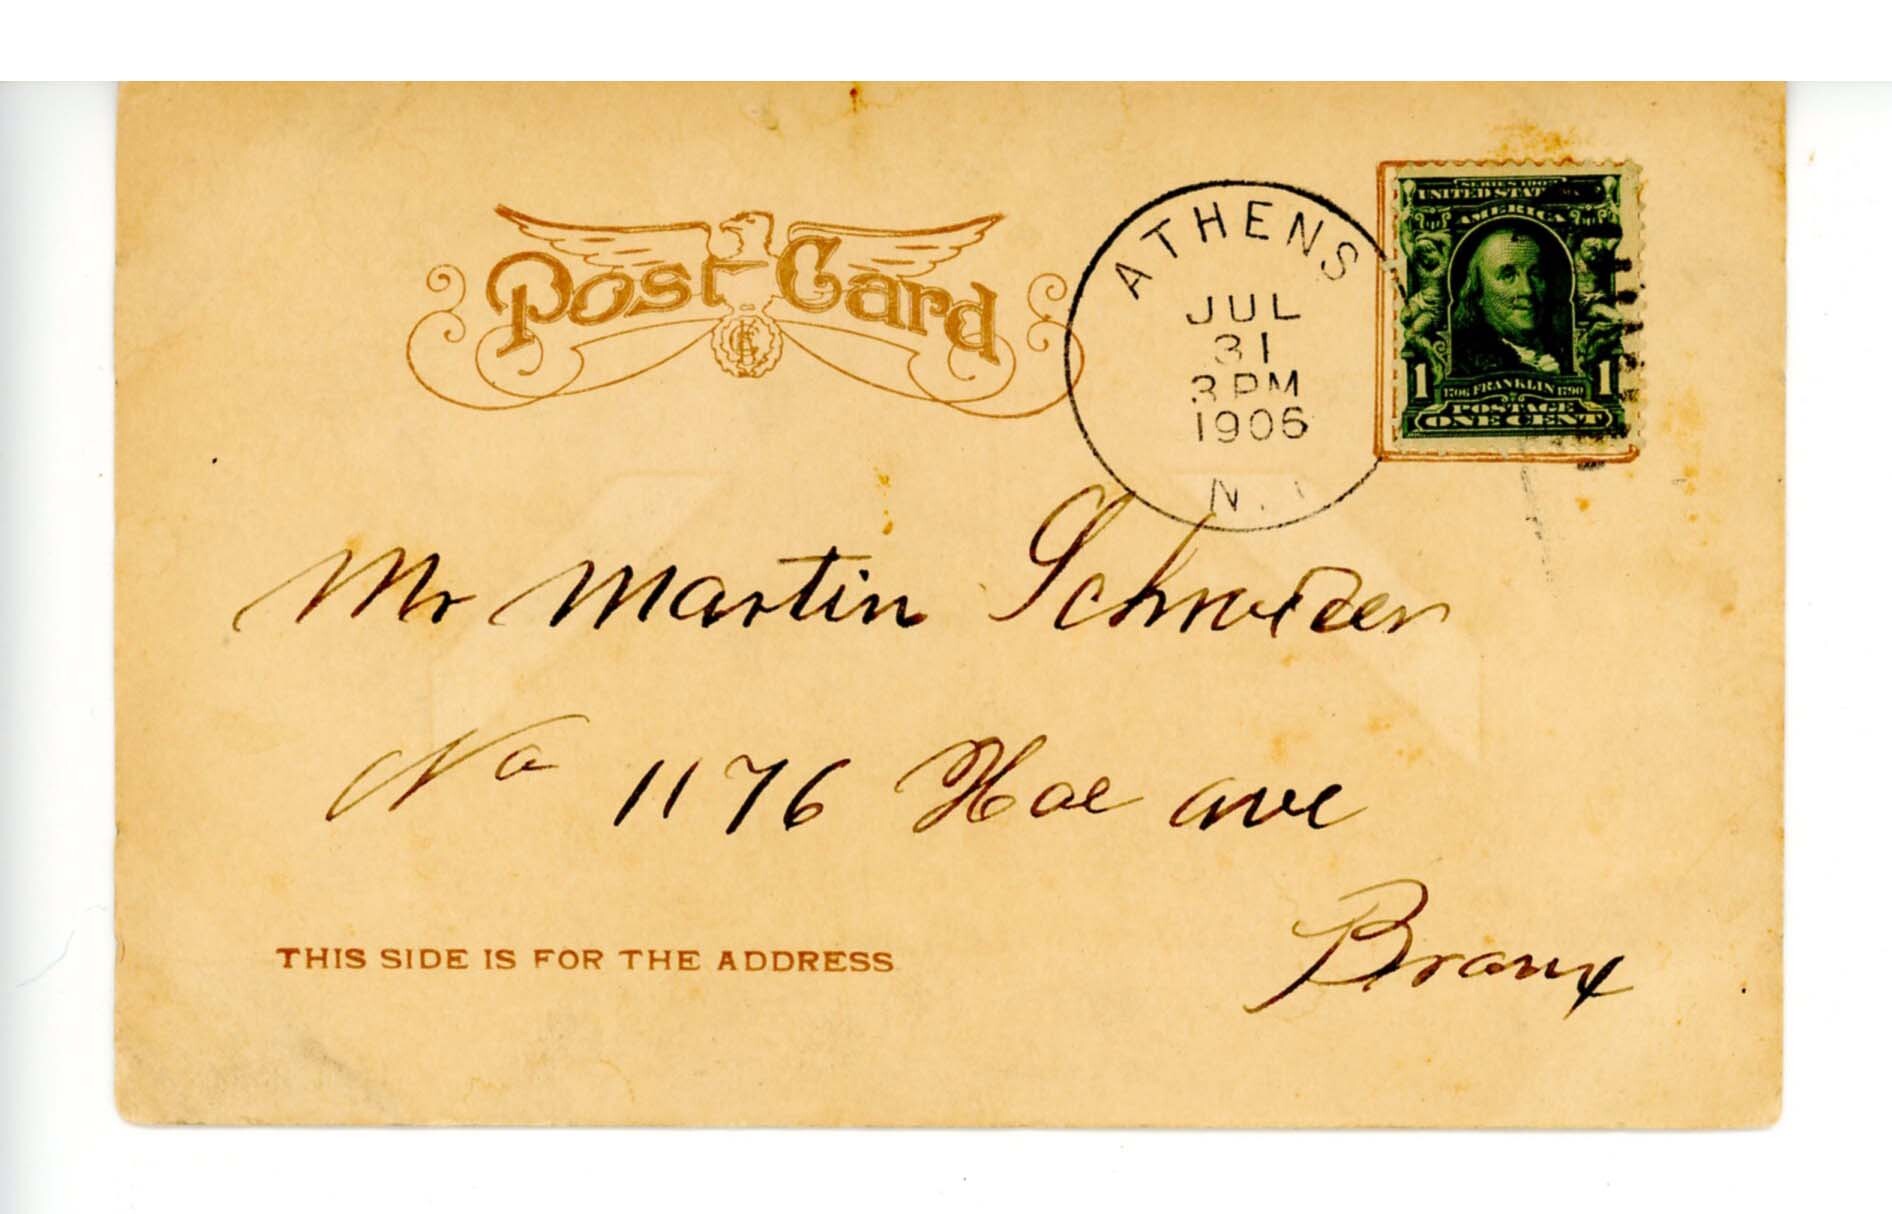 Post Card
ATHENS
JUL
31
3 PM
1906
N.
SERIES 1902
UNITED STATES
AMERICA
1 1706 FRANKLIN 1790 1
POSTAGE
ONE CENT
Mr Martin Schroeder
No 1176 Hoe ave
Bronx
THIS SIDE IS FOR THE ADDRESS